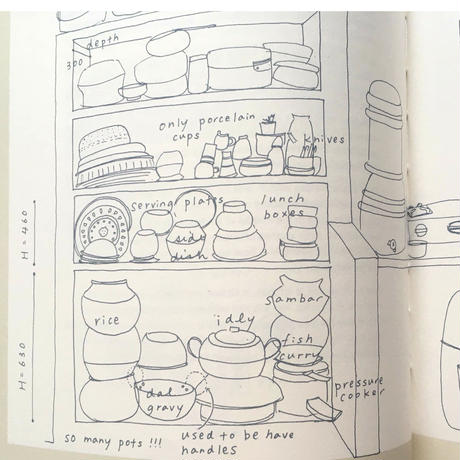 depth
300
only porcelain
cups
knives
serving plates
lunch
boxes
side
dish
H = 460
rice
idly
sambar
fish
curry
dal
gravy
pressure
cooker
H = 630
so many pots !!!
used to be have
handles